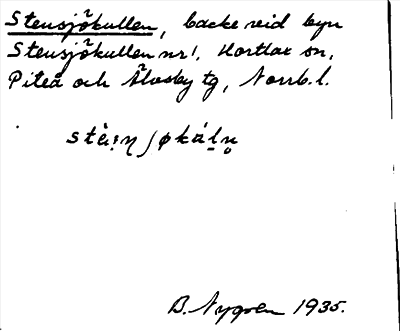 Stensjökullen, backe vid byn
Stensjökullen nr 1, Hortlax sn,
Piteå och Älvsby tg, Norrb. l.
B. Nygren 1935.